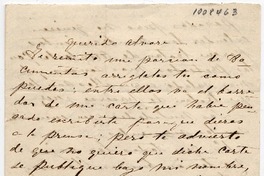 1008463
Querido Alvaro
Te remito una porcion de Do-
cumentos arreglalos tu como
puedas: entre ellos va el borra-
dor de mi carta que habia pen-
sado escribirte para que dieras
a la prensa; pero te advierto
de que no quiero que dicha carta
se publique bajo mi nombre,